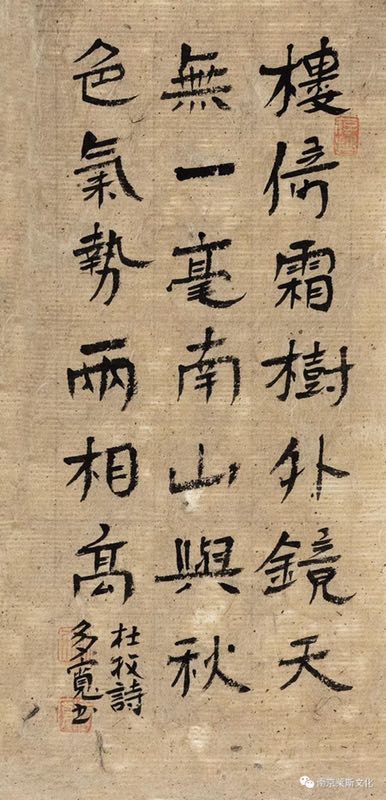 樓倚霜樹外鏡天
無一毫南山與秋
色氣勢兩相高
杜牧詩
多寬書
南京荣斯文化